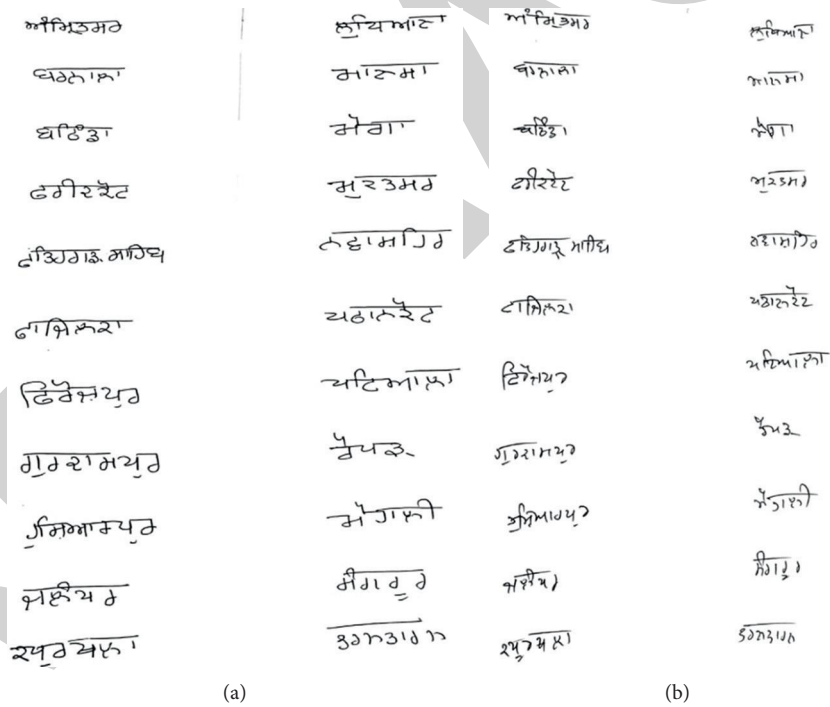 ਅੰਮ੍ਰਿਤਸਰ
ਬਰਨਾਲਾ
ਬਠਿੰਡਾ
ਫਰੀਦਕੋਟ
ਫਤਿਹਗੜ ਸਾਹਿਬ
ਫਾਜਿਲਕਾ
ਫਿਰੋਜਪੁਰ
ਗੁਰਦਾਸਪੁਰ
ਹੁਸਿਆਰਪੁਰ
ਜਲੰਧਰ
ਕਪੁਰਥਲਾ
ਲੁਧਿਆਣਾ
ਮਾਨਸਾ
ਮੋਗਾ
ਮੁਕਤਸਰ
ਨਵਾਸਹਿਰ
ਪਠਾਨਕੋਟ
ਪਟਿਆਲਾ
ਰੋਪੜ
ਮੋਹਾਲੀ
ਸੰਗਰੂਰ
ਤਰਨਤਾਰਨ
(a)
ਅੰਮ੍ਰਿਤਸਰ
ਬਰਨਾਲਾ
ਬਠਿੰਡਾ
ਫਰੀਦਕੋਟ
ਫਤਿਹਗੜ ਸਾਹਿਬ
ਫਾਜਿਲਕਾ
ਫਿਰੋਜਪੁਰ
ਗੁਰਦਾਸਪੁਰ
ਹੁਸਿਆਰਪੁਰ
ਜਲੰਧਰ
ਕਪੁਰਥਲਾ
ਲੁਧਿਆਣਾ
ਮਾਨਸਾ
ਮੋਗਾ
ਮੁਕਤਸਰ
ਨਵਾਸਹਿਰ
ਪਠਾਨਕੋਟ
ਪਟਿਆਲਾ
ਰੋਪੜ
ਮੋਹਾਲੀ
ਸੰਗਰੂਰ
ਤਰਨਤਾਰਨ
(b)